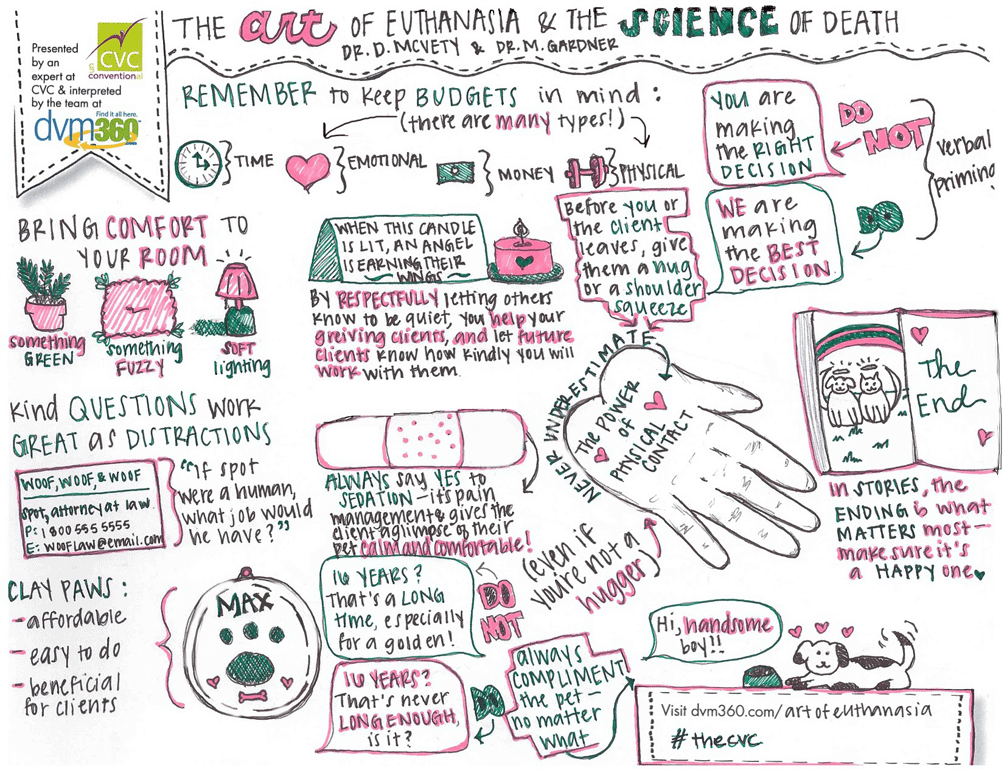 THE art OF EUTHANASIA & THE SCIENCE OF DEATH
DR. D. MCVETY & DR. M. GARDNER
Presented
by an
expert at
CVC & interpreted
by the team at
CVC
conventional
Find it all here.
dvm360
REMEMBER to keep BUDGETS in mind:
(there are many types!)
TIME
EMOTIONAL
MONEY
PHYSICAL
YOU are
making
the RIGHT
DECISION
DO
NOT
WE are
making
the BEST
DECISION
DO
verbal
priming
BRING COMFORT TO
YOUR ROOM
something
GREEN
something
FUZZY
SOFT
lighting
WHEN THIS CANDLE
IS LIT, AN ANGEL
IS EARNING THEIR
WINGS
BY RESPECTFULLY letting others
know to be quiet, you help your
greiving clients, and let future
clients know how kindly you will
work with them.
Before you or
the client
leaves, give
them a hug
or a shoulder
squeeze
NEVER UNDERESTIMATE
The POWER
OF
PHYSICAL
CONTACT
(even if
you're not a
hugger)
The
End
in STORIES, the
ENDING is what
MATTERS most—
make sure it's
a HAPPY one
kind QUESTIONS work
GREAT as DISTRACTIONS
WOOF, WOOF, & WOOF
Spot, attorney at law
P: 1 800 555 5555
E: WOOFLAW@email.com
"if spot
were a human,
what job would
he have?"
ALWAYS say YES to
SEDATION—its pain
management & gives the
client a glimpse of their
pet calm and comfortable!
CLAY PAWS:
- affordable
- easy to do
- beneficial
for clients
MAX
16 YEARS?
That's a LONG
time, especially
for a golden!
DO
NOT
16 YEARS?
That's never
LONG ENOUGH,
is it?
DO
always
COMPLIMENT
the pet—
no matter
what
Hi, handsome
boy!!
Visit dvm360.com/artofeuthanasia
#thecvc